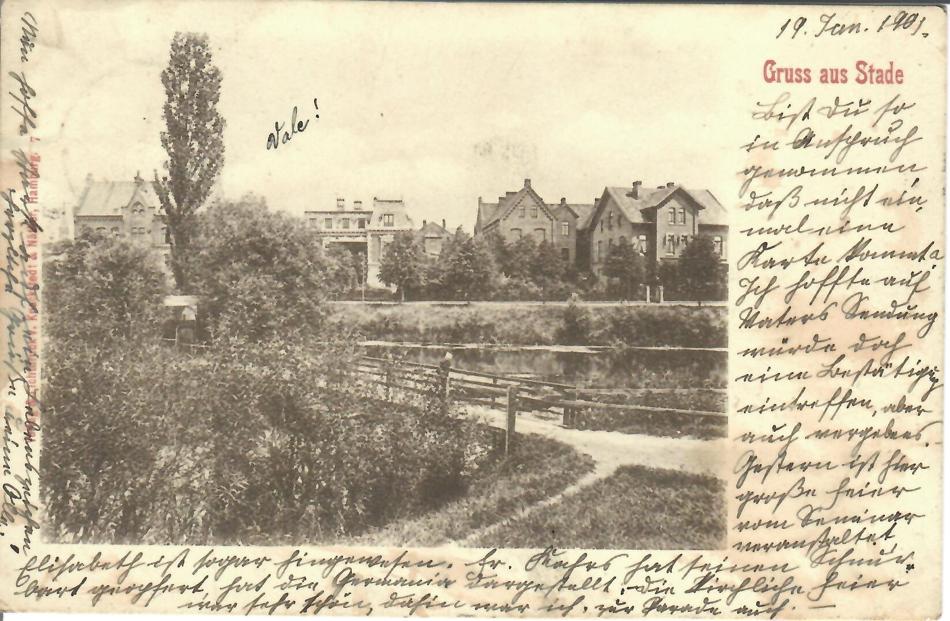 19. Jan. 1901.
Gruss aus Stade
Vale!
Bist Du so
in Anspruch
genommen
daß nicht ein,
mal eine
Karte kommt?
Ich hoffte auf
Vaters Sendung
würde doch
eine Bestätig̅g
eintreffen, aber
auch vergebens.
Gestern ist hier
große Feier
vom Seminar
veranstaltet
Elisabeth ist sogar hingewesen. Fr. Kahrs hat seinen Schnurr,
bart geopfert, hat die Germania dargestellt. die kirchliche Feier
war sehr schön, dahin war ich, zur Parade auch. —
Nun hoffe